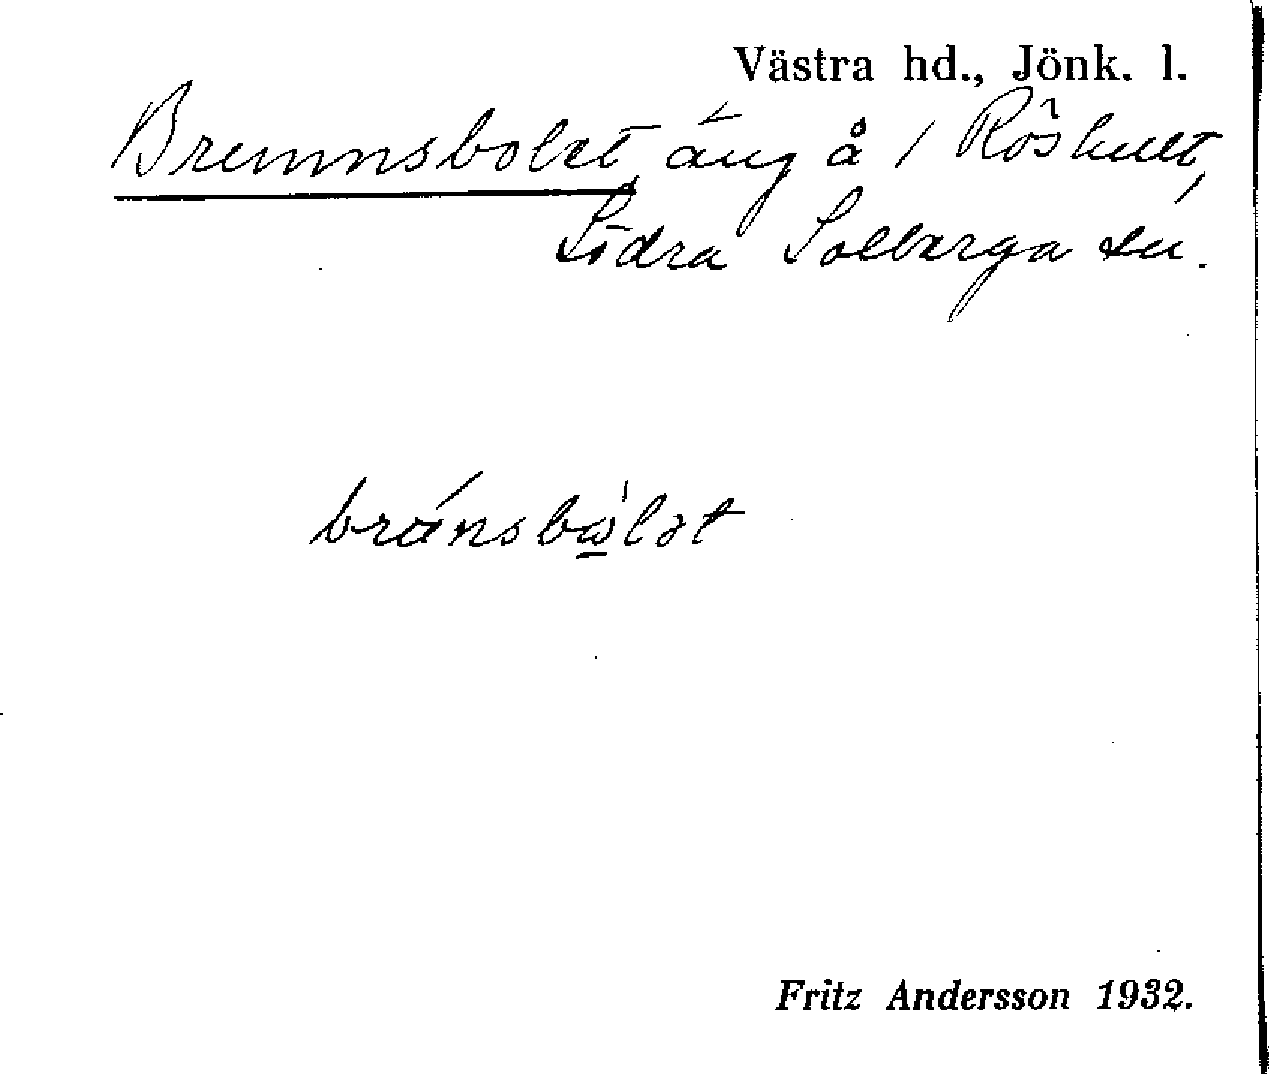 Västra hd., Jönk. l.
Brunnsbolet, äng å / Röshult,
Södra Solberga sn.
bránsbὼ̲lət
Fritz Andersson 1932.